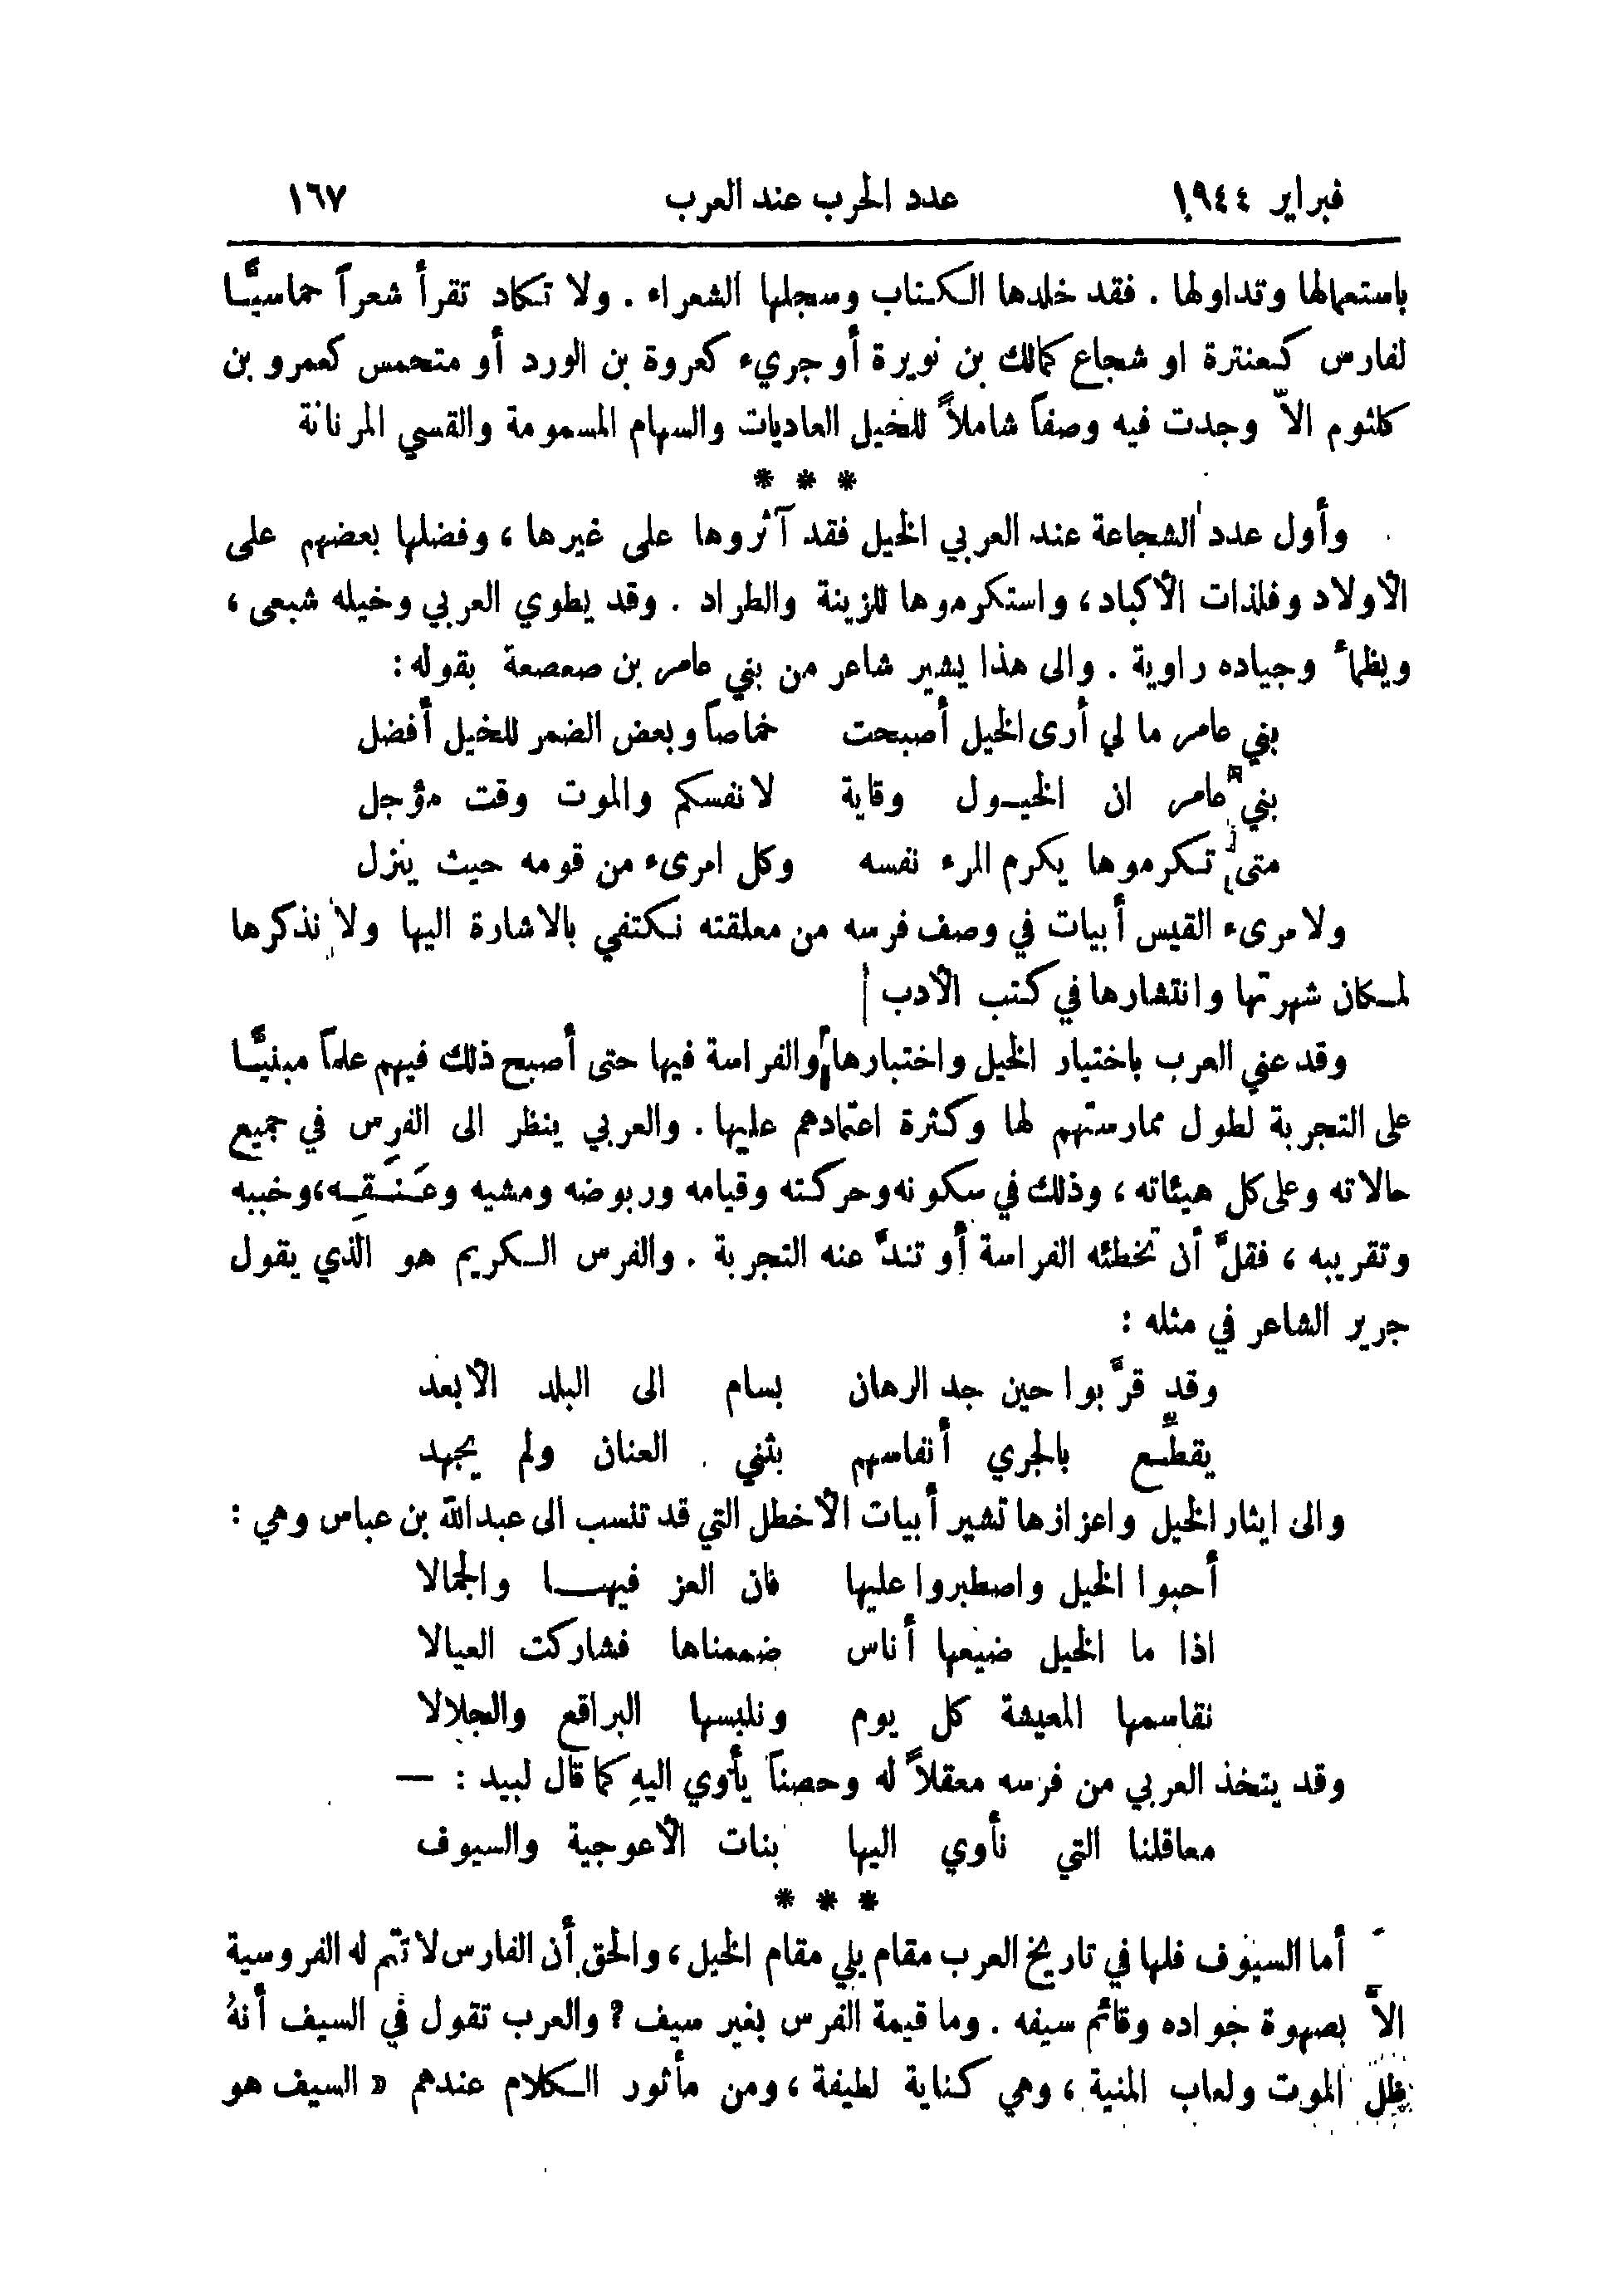 فبراير ١٩٤٤ عدد الحرب عند العرب ١٦٧
باستعمالها وتداولها . فقد خلدها الكتاب وسجلها الشعراء . ولا تكاد تقرأ شعراً حماسيًّا
لفارس كعنترة او شجاع كمالك بن نويرة أو جريء كعروة بن الورد أو متحمس كعمرو بن
كلثوم الاّ وجدت فيه وصفاً شاملاً للخيل العاديات والسهام المسمومة والقسي المرنانة
* * *
وأول عدد الشجاعة عند العربي الخيل فقد آثروها على غيرها ، وفضلها بعضهم على
الأولاد وفلذات الأكباد ، واستكرموها للزينة والطراد . وقد يطوي العربي وخيله شبعى ،
ويظمأ وجياده راوية . والى هذا يشير شاعر من بني عامر بن صعصعة بقوله :
بني عامر ما لي أرى الخيل أصبحت خماصاً وبعض الضمر للخيل أفضل
بني عامر ان الخيول وقاية لانفسكم والموت وقت مؤجل
متى تكرموها يكرم المرء نفسه وكل امرىء من قومه حيث ينزل
ولامرىء القيس أبيات في وصف فرسه من معلقته نكتفي بالاشارة اليها ولا نذكرها
لمكان شهرتها وانتشارها في كتب الأدب
وقد عني العرب باختيار الخيل واختبارها والفراسة فيها حتى أصبح ذلك فيهم علماً مبنيًّا
على التجربة لطول ممارستهم لها وكثرة اعتمادهم عليها . والعربي ينظر الى الفرس في جميع
حالاته وعلى كل هيئاته ، وذلك في سكونه وحركته وقيامه وربوضه ومشيه وعَنَقِه ، وخببه
وتقريبه ، فقلَّ أن تخطئه الفراسة أو تندَّ عنه التجربة . والفرس الكريم هو الذي يقول
جرير الشاعر في مثله :
وقد قرَّبوا حين جد الرهان بسام الى البلد الأبعد
يقطّع بالجري أنفاسهم بثني العنان ولم يجهد
والى ايثار الخيل واعزازها تشير أبيات الأخطل التي قد تنسب الى عبدالله بن عباس وهي :
أحبوا الخيل واصطبروا عليها فان العز فيها والجمالا
اذا ما الخيل ضيعها أناس ضممناها فشاركت العيالا
نقاسمها المعيشة كل يوم ونلبسها البراقع والجلالا
وقد يتخذ العربي من فرسه معقلاً له وحصناً يأوي اليهِ كما قال لبيد : —
معاقلنا التي نأوي اليها بنات الأعوجية والسيوف
* * *
أما السيوف فلها في تاريخ العرب مقام يلي مقام الخيل ، والحق أن الفارس لا تتم له الفروسية
الاَّ بصهوة جواده وقائم سيفه . وما قيمة الفرس بغير سيف ؟ والعرب تقول في السيف أنهُ
ظل الموت ولعاب المنية ، وهي كناية لطيفة ، ومن مأثور الكلام عندهم « السيف هو